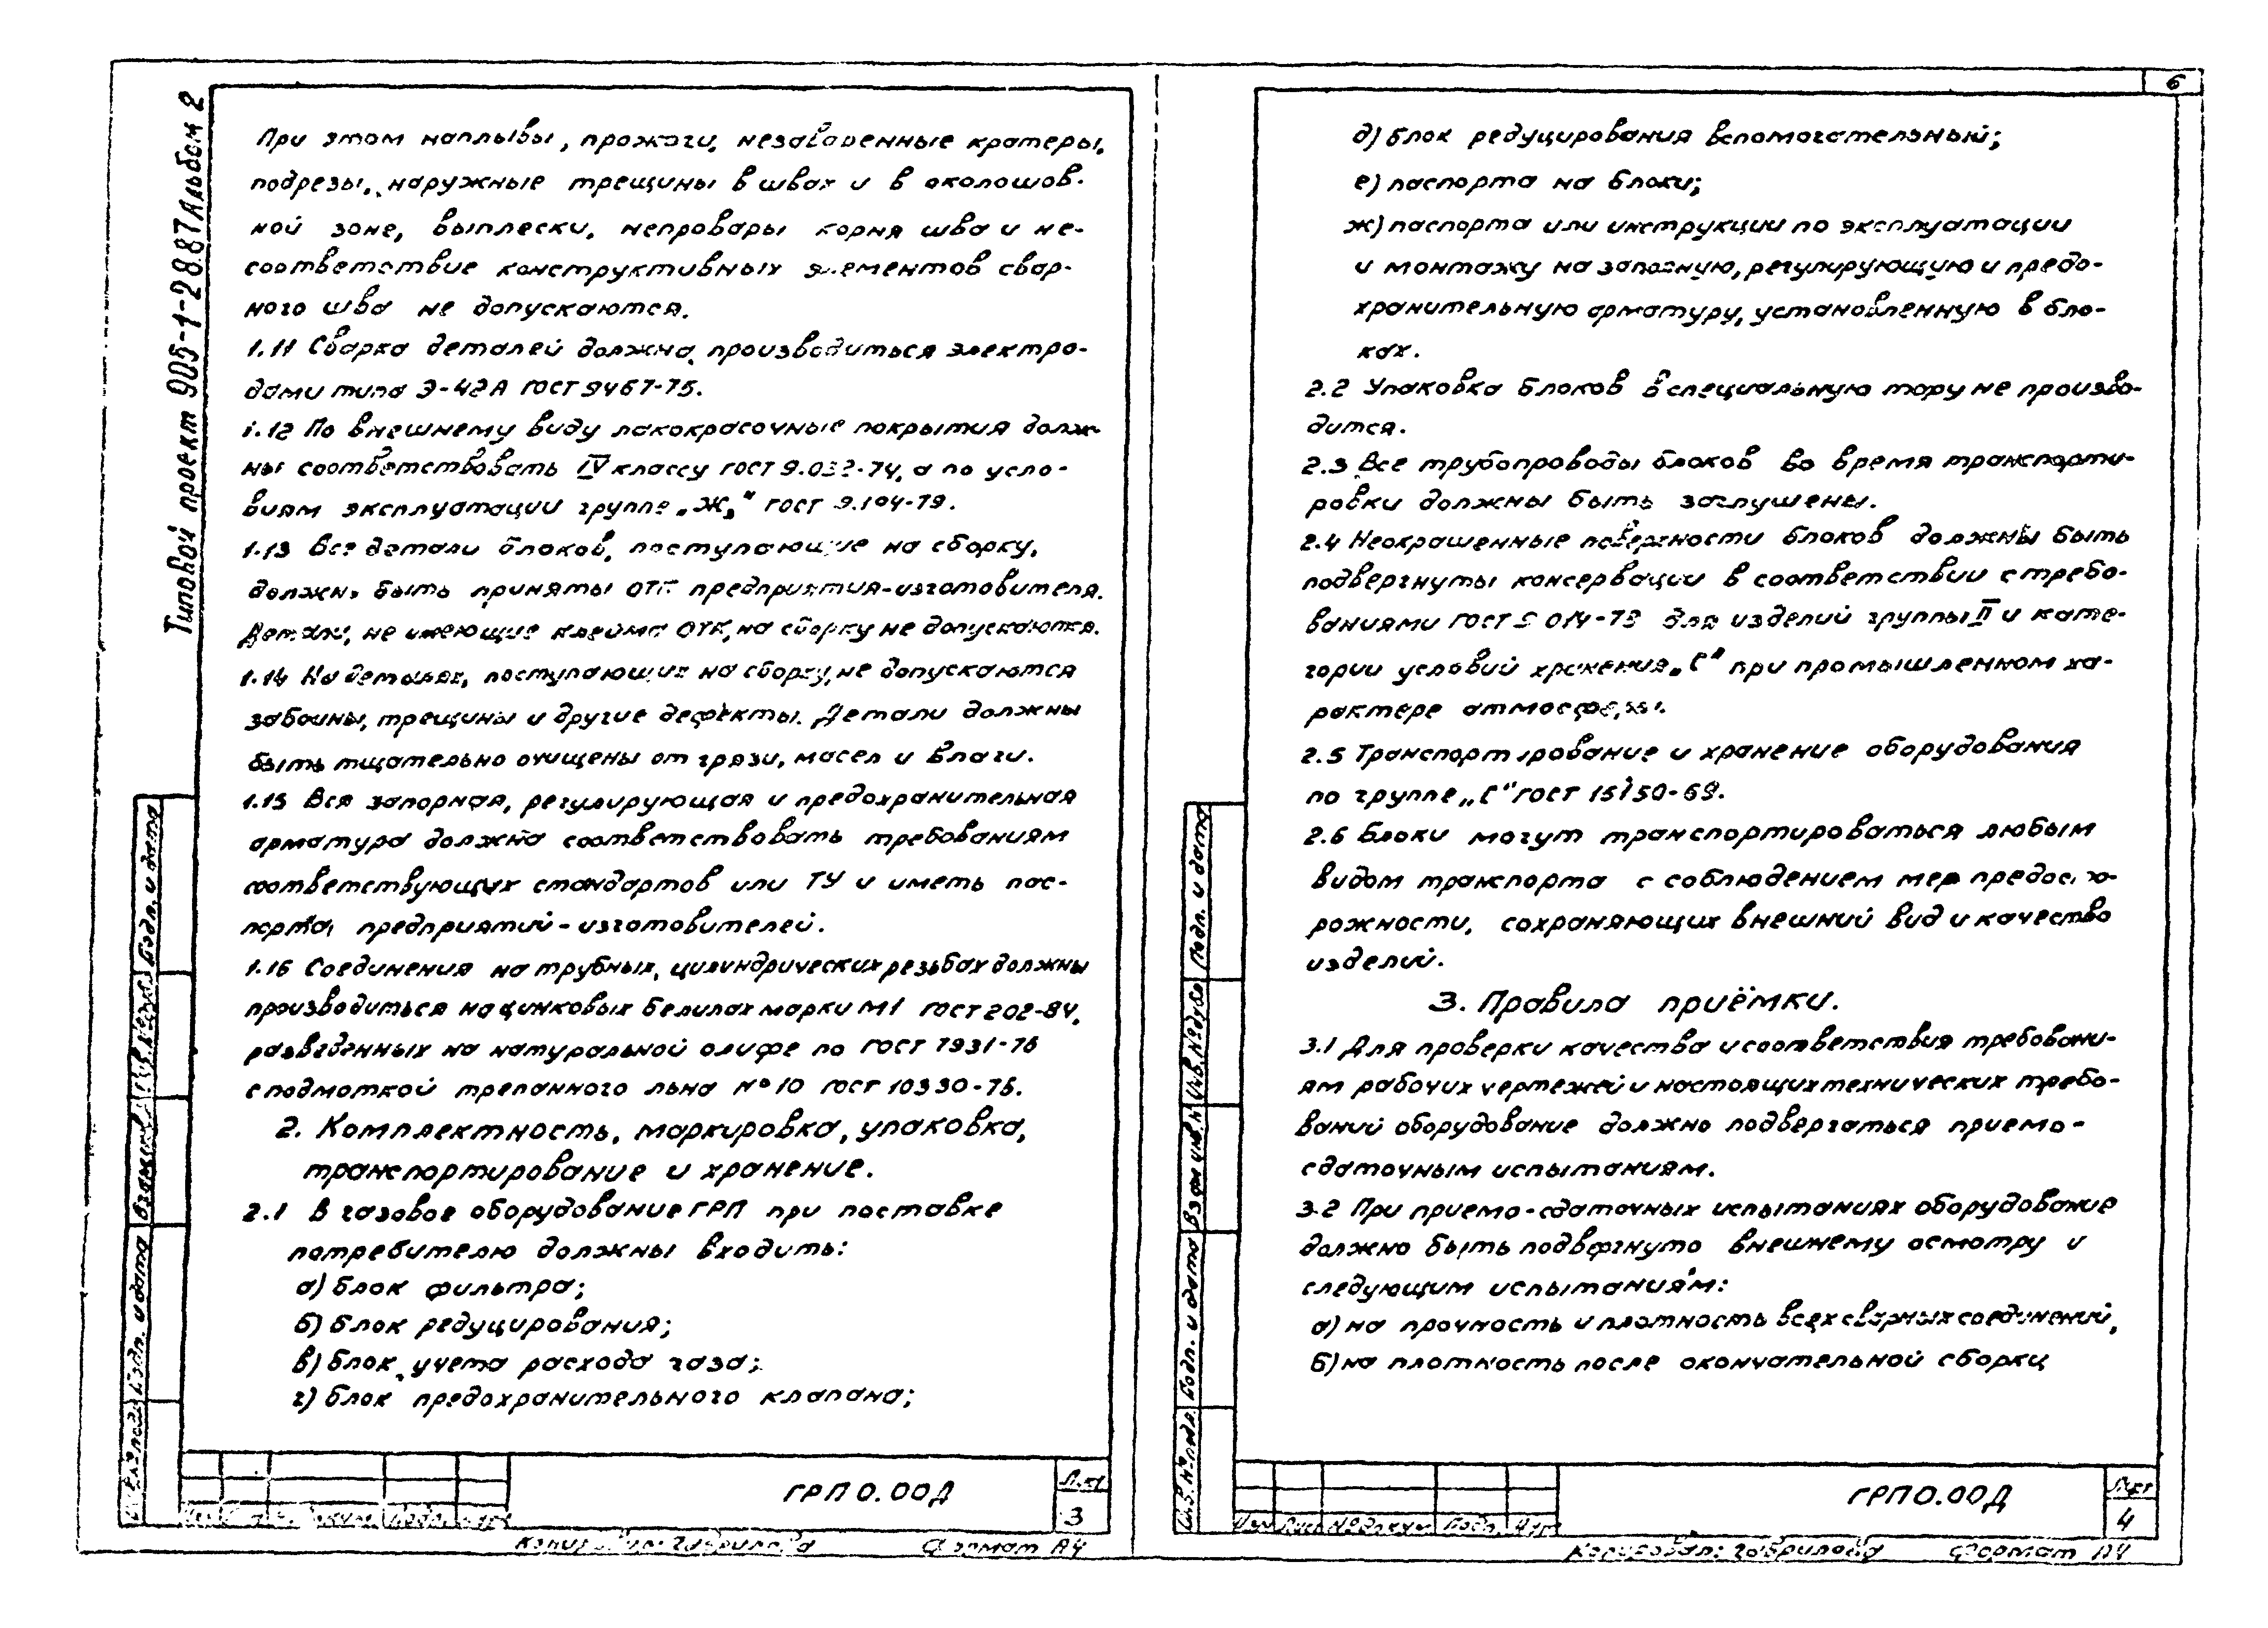 Типовой проект 905-1-28.87 Альбом 2
При этом наплывы, прожоги, незаваренные кратеры,
подрезы, наружные трещины в швах и в околошов-
ной зоне, выплески, непровары корня шва и не-
соответствие конструктивных элементов свар-
ного шва не допускаются.
1.11 Сварка деталей должна производиться электро-
дами типа Э-42А ГОСТ 9467-75.
1.12 По внешнему виду лакокрасочные покрытия долж-
ны соответствовать IV классу ГОСТ 9.032-74, а по усло-
виям эксплуатации группе „Ж2“ ГОСТ 9.104-79.
1.13 Все детали блоков, поступающие на сборку,
должны быть приняты ОТК предприятия-изготовителя.
Детали, не имеющие клейма ОТК, на сборку не допускаются.
1.14 На деталях, поступающих на сборку, не допускаются
забоины, трещины и другие дефекты. Детали должны
быть тщательно очищены от грязи, масел и влаги.
1.15 Вся запорная, регулирующая и предохранительная
арматура должна соответствовать требованиям
соответствующих стандартов или ТУ и иметь пас-
порта предприятий-изготовителей.
1.16 Соединения на трубных, цилиндрических резьбах должны
производиться на цинковых белилах марки М1 ГОСТ 202-84,
разведенных на натуральной олифе по ГОСТ 7931-76
с подмоткой трепанного льна №10 ГОСТ 10330-76.
2. Комплектность, маркировка, упаковка,
транспортирование и хранение.
2.1 В газовое оборудование ГРП при поставке
потребителю должны входить:
а) блок фильтра;
б) блок редуцирования;
в) блок учета расхода газа;
г) блок предохранительного клапана;
ГРП 0.00Д
Лист
3
Копировал: Гаврилова Формат А4
6
д) блок редуцирования вспомогательный;
е) паспорта на блоки;
ж) паспорта или инструкции по эксплуатации
и монтажу на запорную, регулирующую и предо-
хранительную арматуру, установленную в бло-
ках.
2.2 Упаковка блоков в специальную тару не произво-
дится.
2.3 Все трубопроводы блоков во время транспорти-
ровки должны быть заглушены.
2.4 Неокрашенные поверхности блоков должны быть
подвергнуты консервации в соответствии с требо-
ваниями ГОСТ 9.014-78 для изделий группы II и кате-
гории условий хранения „С“ при промышленном ха-
рактере атмосферы.
2.5 Транспортирование и хранение оборудования
по группе „С“ ГОСТ 15150-69.
2.6 Блоки могут транспортироваться любым
видом транспорта с соблюдением мер предосто-
рожности, сохраняющих внешний вид и качество
изделий.
3. Правила приёмки.
3.1 Для проверки качества и соответствия требовани-
ям рабочих чертежей и настоящих технических требо-
ваний оборудование должно подвергаться приемо-
сдаточным испытаниям.
3.2 При приемо-сдаточных испытаниях оборудование
должно быть подвергнуто внешнему осмотру и
следующим испытаниям:
а) на прочность и плотность всех сварных соединений,
б) на плотность после окончательной сборки
Инв.№ подл. Подп. и дата Взам инв.№ Инв.№ дубл Подп. и дата
Изм Лист № докум Подп. Дата
ГРП 0.00Д
Лист
4
Копировал: Гаврилова Формат А4